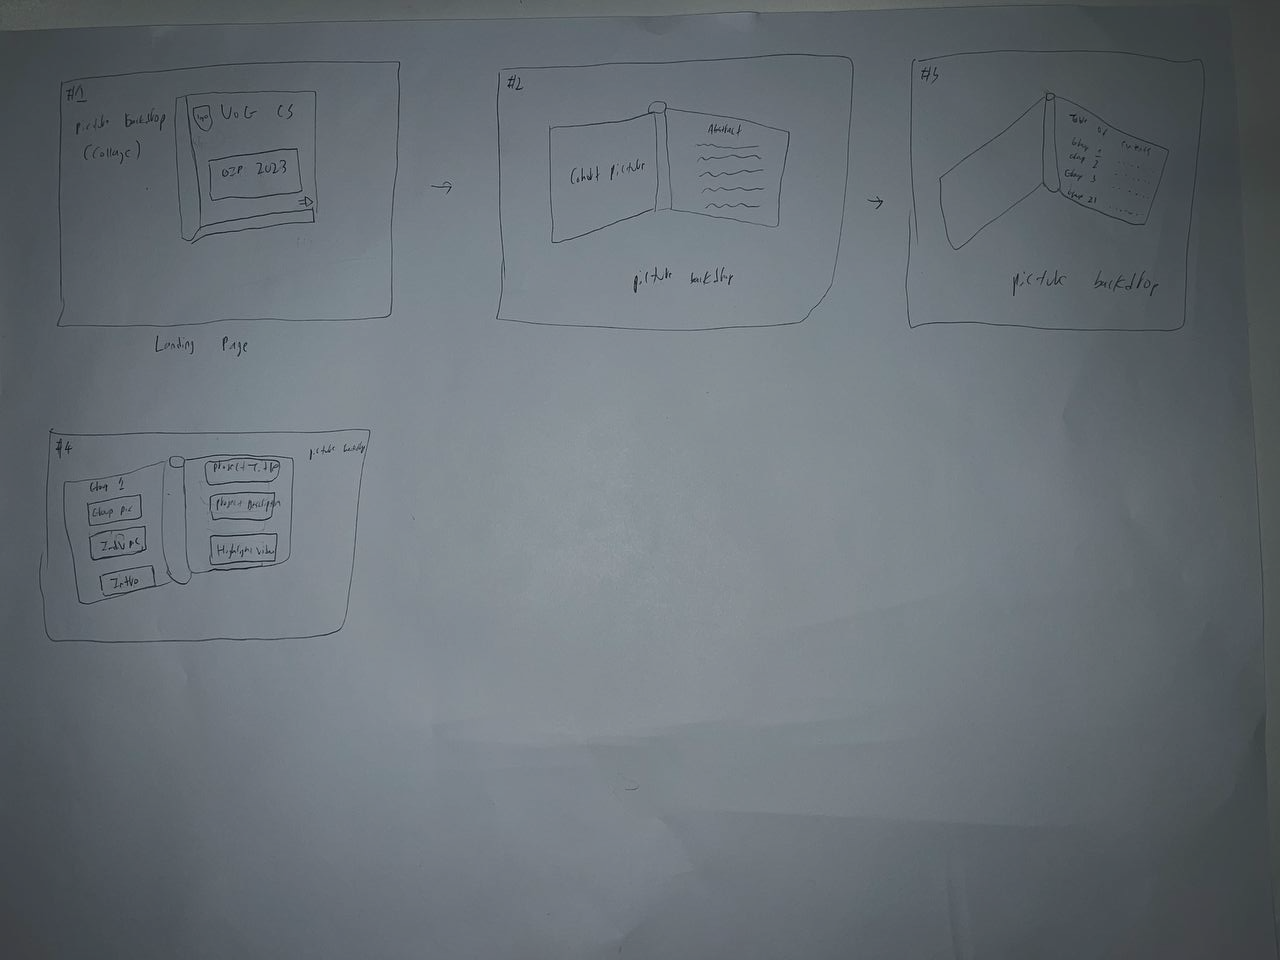 #1
picture backdrop
(Collage)
logo
UoG CS
OIP 2023
Landing Page
#2
Cohort picture
Abstract
picture backdrop
#3
Table of Contents
Group 1
Group 2
Group 3
Group 21
picture backdrop
#4
picture backdrop
Group 1
Group pic
Intro
Project Title
Project Description
Highlight video